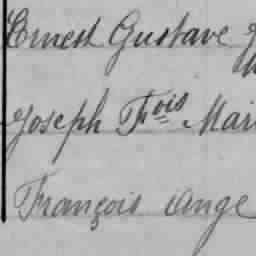 Ernest Gustave
Joseph Fois Mari
François Ange